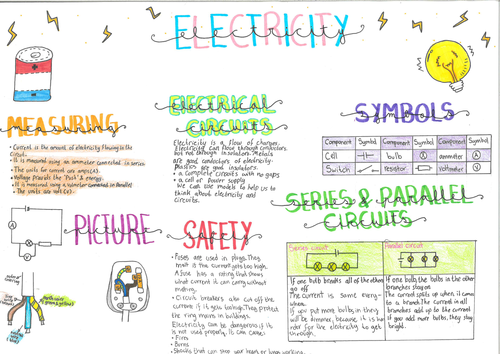 ELECTRICITY
electricity
MEASURING
measuring
• Current is the amount of electricity flowing in the
circuit.
• It is measured using an ammeter connected in series
• The units for current are amps (A).
• Voltage provides the 'Push' & energy.
• It is measured using a voltmeter connected in Parallel
• The units are volt (V).
ELECTRICAL
electrical
CIRCUITS
circuits
Electricity is a flow of charges.
Electricity can flow through conductors
but not through insulators. Metals
are good conductors of electricity.
plastics are good insulators.
• a complete circuit with no gaps
• a cell or power supply
We can use models to help us to
think about electricity and
circuits.
SYMBOLS
symbols
Component Symbol Component Symbol Component Symbol
Cell bulb ammeter A
Switch resistor voltmeter V
PICTURE
picture
A
V
SAFETY
safety
• Fuses are used in plugs. They
melt if the current gets too high.
A fuse has a rating that shows
what current it can carry without
melting.
• Circuit breakers also cut off the
current if it's too high. They protect
the ring mains in buildings.
Electricity can be dangerous if it
is not used properly. It can cause:
• Fires
• Burns
• Shocks (that can stop your heart or lungs working.
SERIES & PARALLEL
series & parallel
CIRCUITS
circuits
Series circuit
If one bulb breaks all of the others
go off
The current is the same every-
where.
If you put more bulbs in they
will be dimmer, because it is har
der for the electricity to get
through.
Parallel circuit
If one bulb, the bulbs in the other
branches stay on
The current splits up when it comes
to a branch. The current in all
branches add up to the current
if you add more bulbs, they stay
bright.